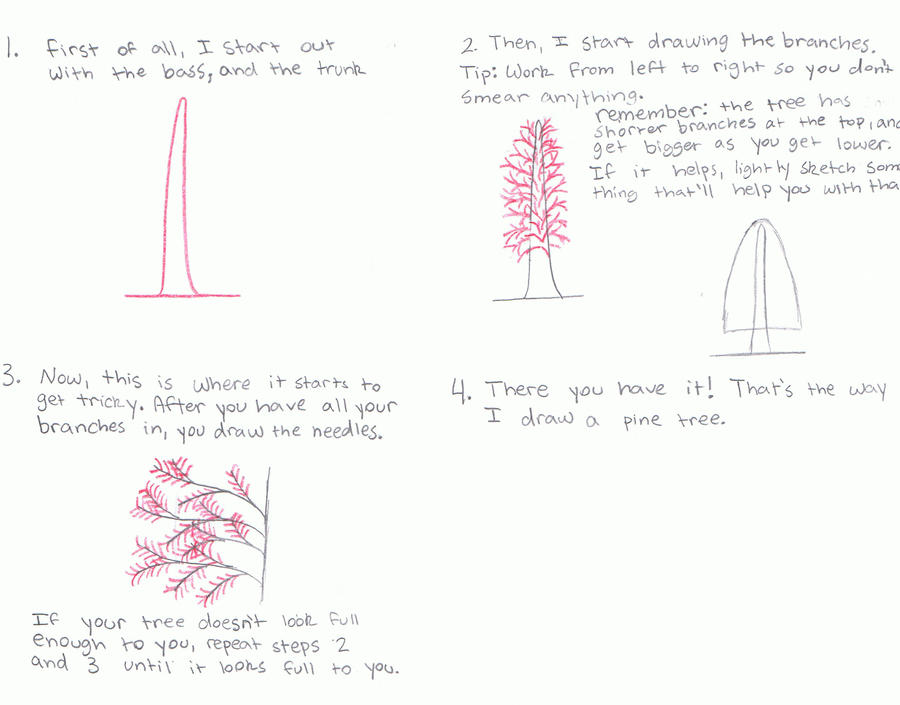 1. First of all, I start out
with the bass, and the trunk
2. Then, I start drawing the branches.
Tip: Work from left to right so you don't
smear anything.
remember: the tree has
shorter branches at the top, and
get bigger as you get lower.
If it helps, lightly sketch som
thing that'll help you with tha
3. Now, this is where it starts to
get tricky. After you have all your
branches in, you draw the needles.
If your tree doesn't look full
enough to you, repeat steps 2
and 3 until it looks full to you.
4. There you have it! That's the way
I draw a pine tree.